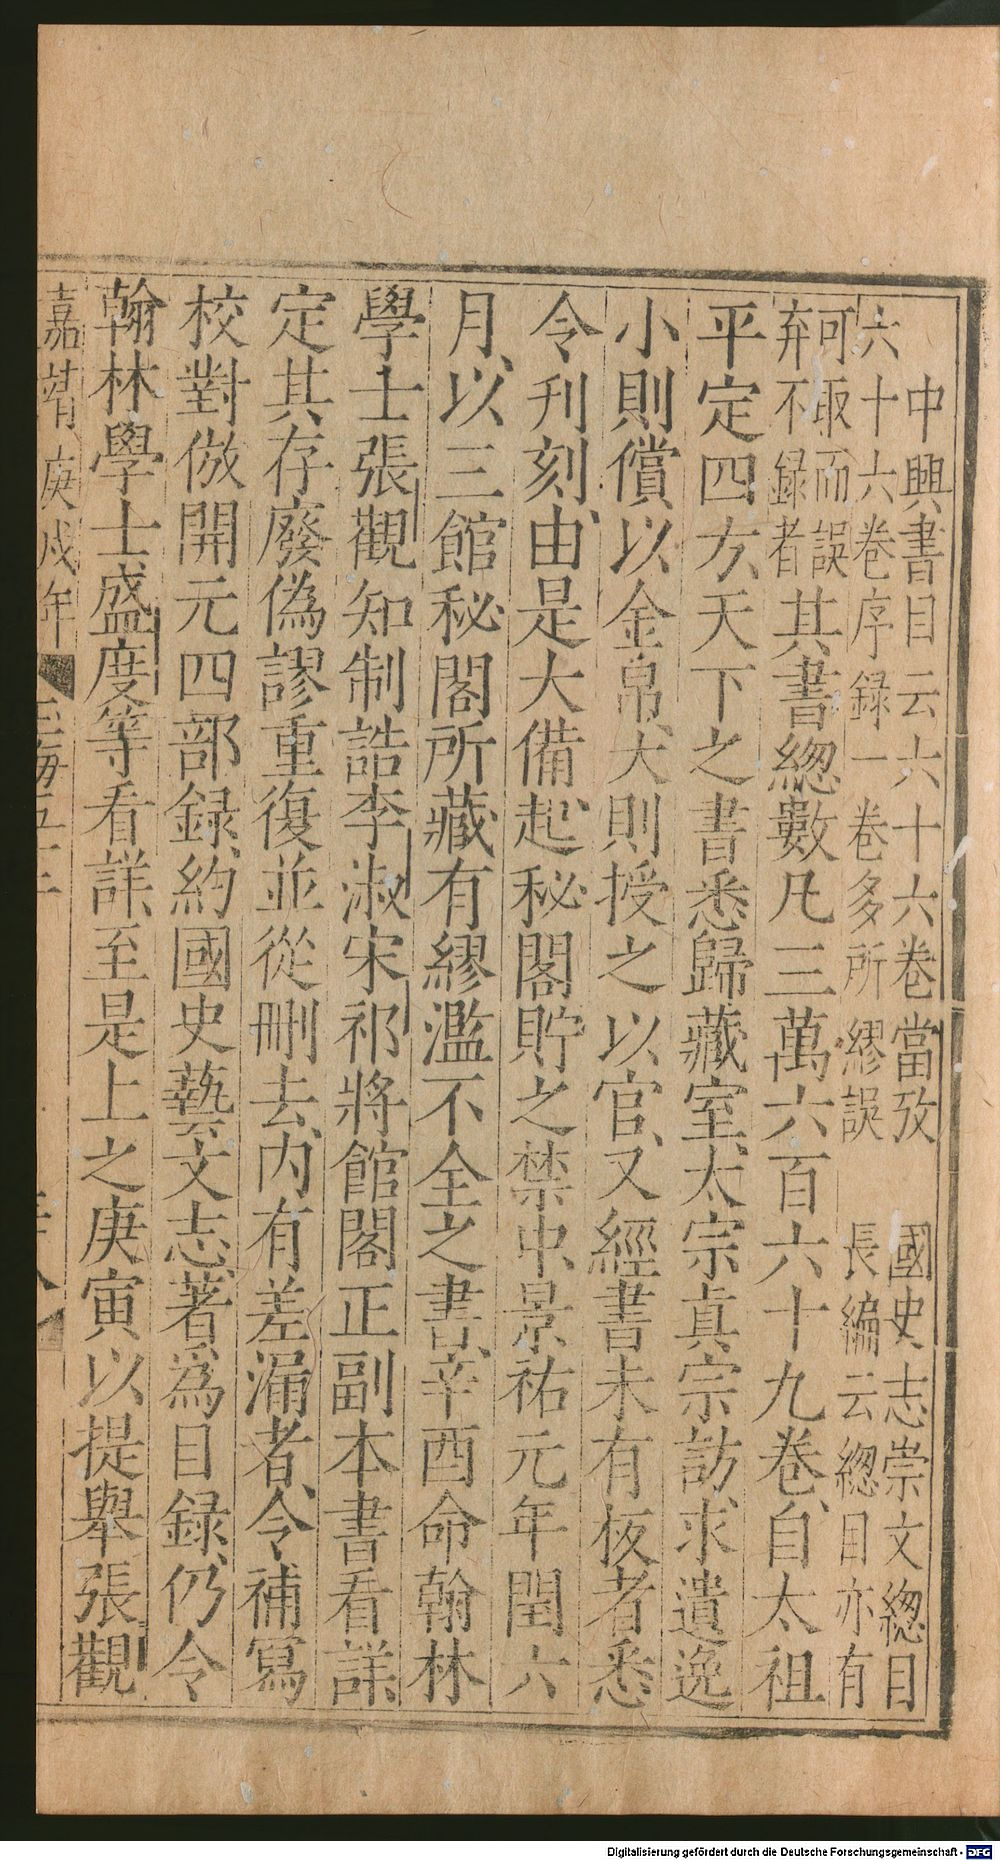 中興書目云六十六卷當攷　國史志崇文總目
六十六卷序録一卷多所繆誤　長編云總目亦有
可取而誤
弃不録者
其書總數凡三萬六百六十九卷、自太祖
平定四方、天下之書悉歸藏室、太宗真宗訪求遺逸
小則償以金帛、大則授之以官、又經書未有板者悉
令刊刻、由是大備、起秘閣貯之禁中、景祐元年閏六
月、以三館秘閣所藏有繆濫不全之書、辛酉命翰林
學士張觀知制誥李淑宋祁將館閣正副本書看詳
定其存廢偽謬重復並從刪去、内有差漏者、令補寫
校對倣開元四部録、約國史藝文志、著爲目録、仍令
翰林學士盛度等看詳至是上之庚寅以提舉張觀
嘉靖庚戌年　玉海五十二
Digitalisierung gefördert durch die Deutsche Forschungsgemeinschaft - DFG